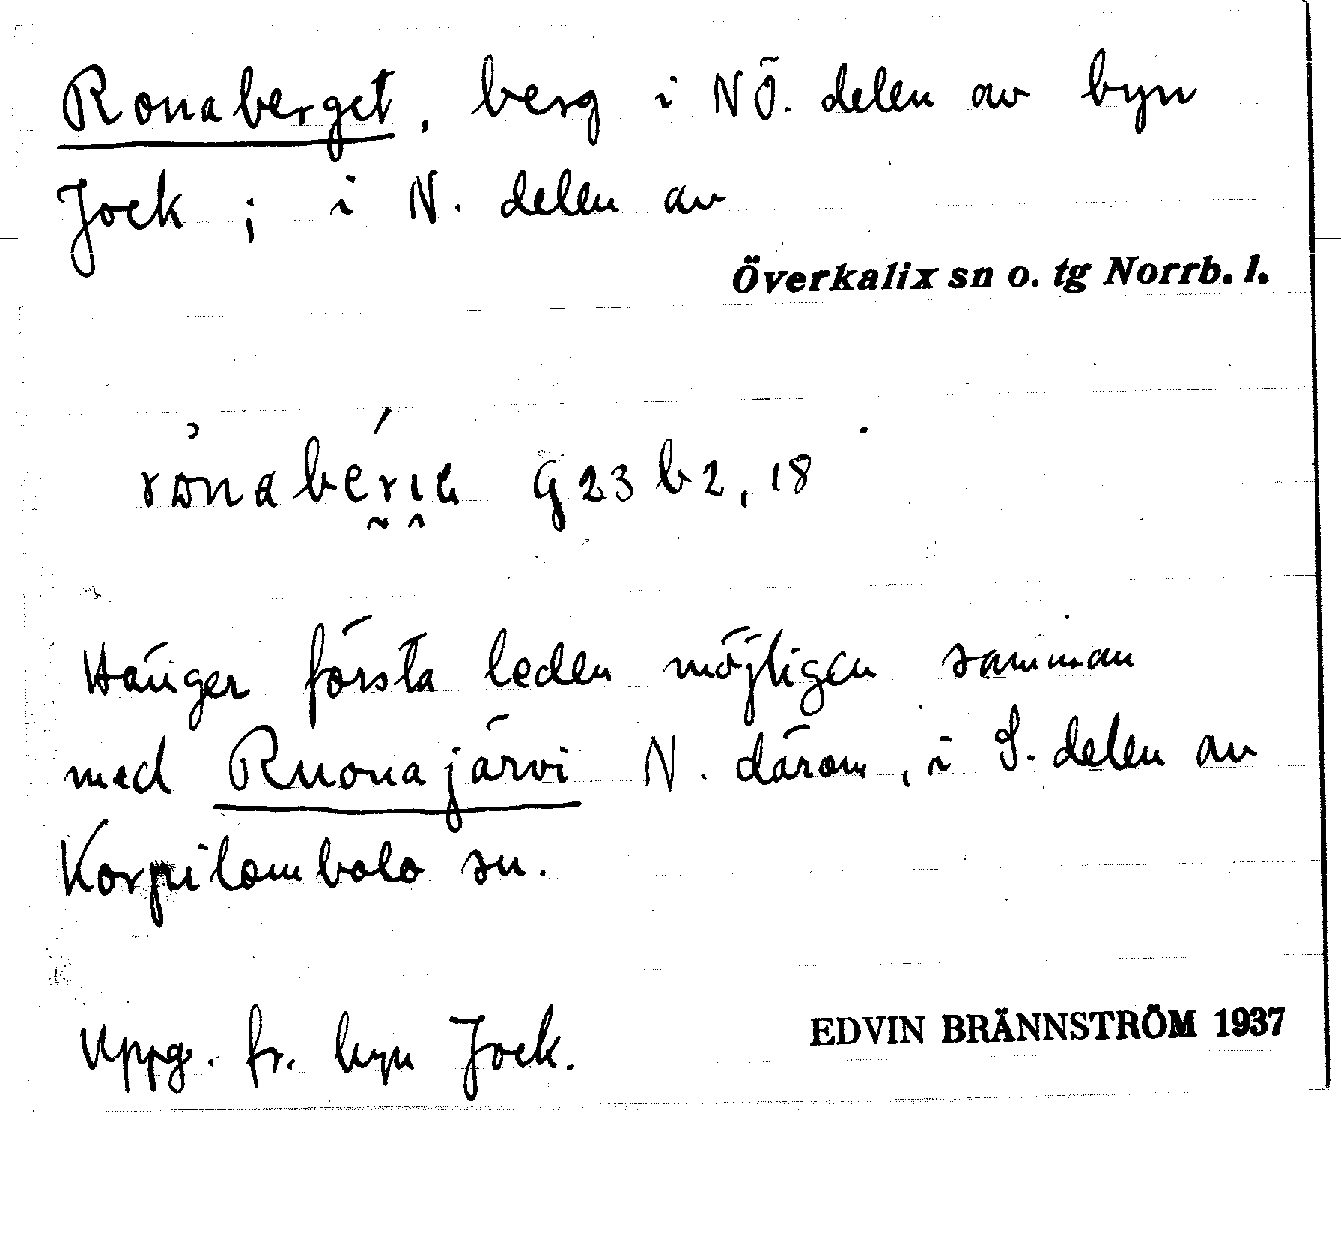 Ronaberget, berg i NÖ. delen av byn
Jock ; i N. delen av
Överkalix sn o. tg Norrb. l.
G 23 b 2, 18
Hänger första leden möjligen samman
med Ruonajärvi N. därom, i S. delen av
Korpilombolo sn.
Uppg. fr. byn Jock.
EDVIN BRÄNNSTRÖM 1937